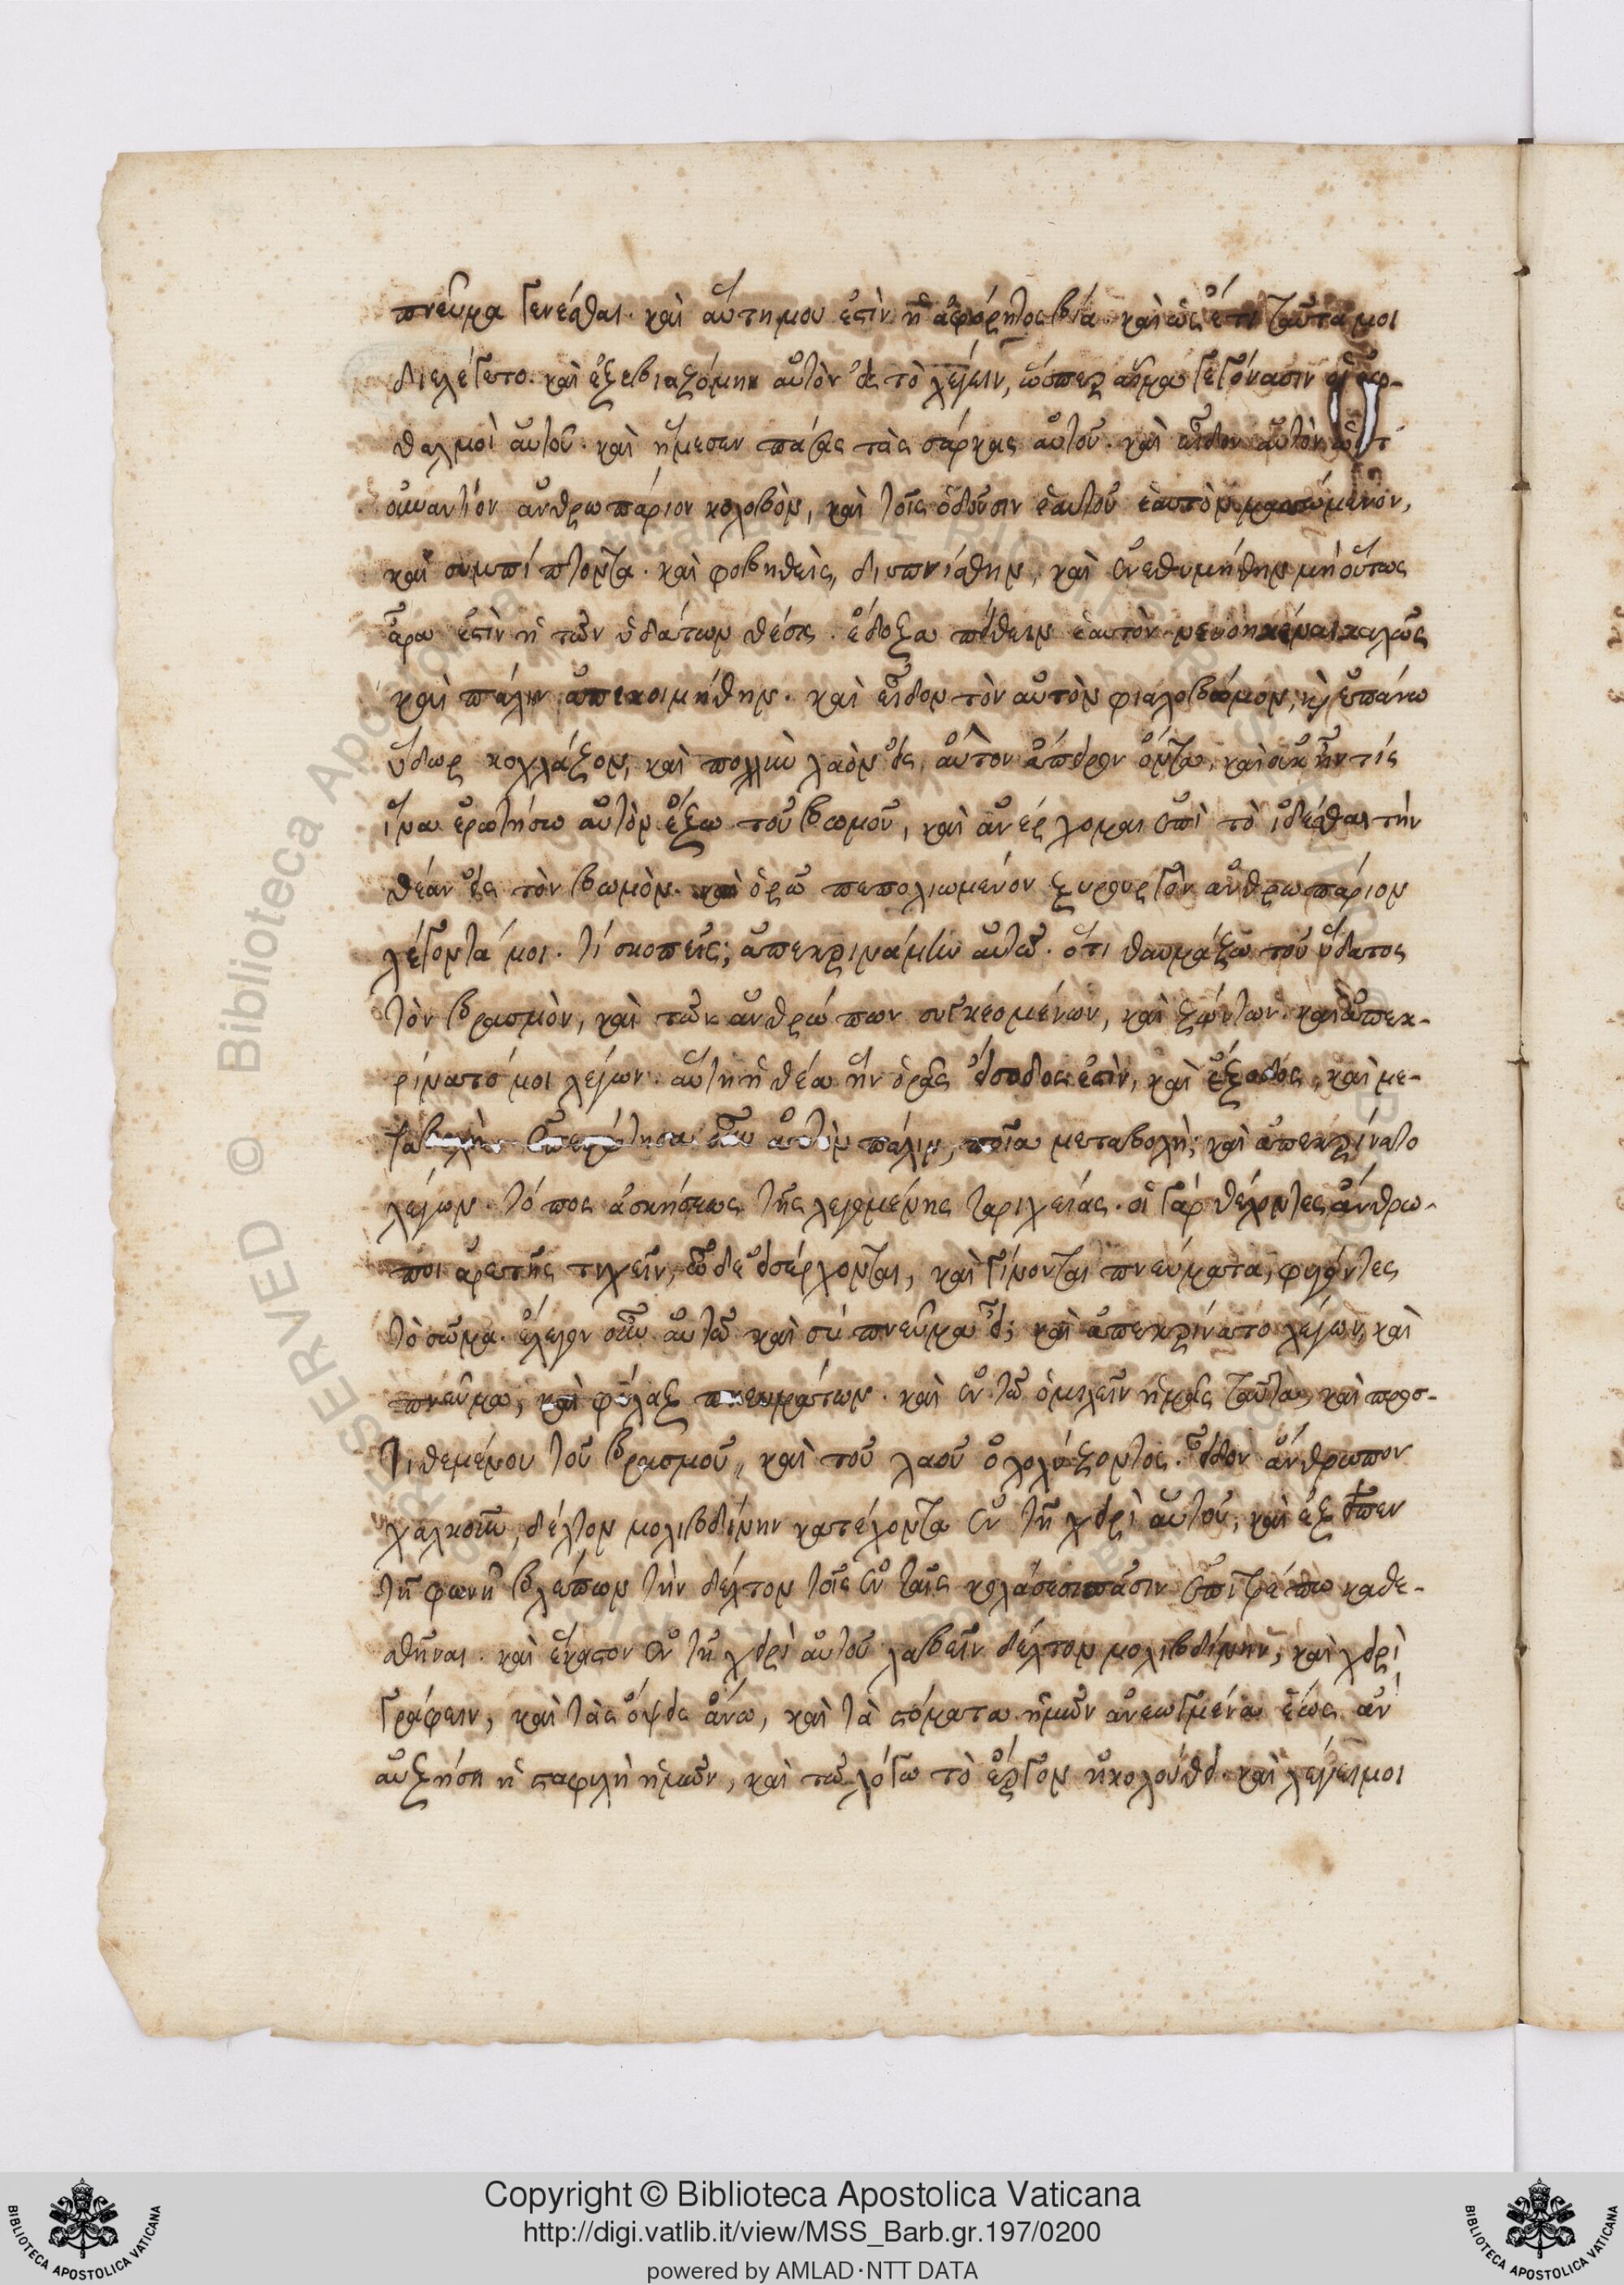 πνεῦμα γενέσθαι. καὶ αὕτη μου ἐστὶν ἡ ἀφόρητος βία. καὶ ὡς ἔτι ταῦτά μοι
διελέγετο. καὶ ἐξεβιαζόμην αὐτὸν εἰς τὸ λέγειν, ὥσπερ αἷμα γεγόνασιν οἱ ὀφ-
θαλμοὶ αὐτοῦ. καὶ ἤμεσεν πάσας τὰς σάρκας αὐτοῦ. καὶ εἶδον αὐτὸν
ἀνθρωπάριον κολοβὸν, καὶ τοῖς ὀδοῦσιν ἑαυτοῦ ἑαυτὸν μασώμενον,
καὶ συμπίπτοντα. καὶ φοβηθεὶς, διυπνίσθην, καὶ ἐνεθυμήθην μὴ οὕτως
ἄρα ἐστὶν ἡ τῶν ὑδάτων θέσις. ἔδοξα πείθειν ἑαυτὸν νενοηκέναι καλῶς
καὶ πάλιν ἀπεκοιμήθην. καὶ εἶδον τὸν αὐτὸν φιαλοβωμὸν, καὶ ἐπάνω
ὕδωρ κοχλάζον, καὶ πολλὺν λαὸν εἰς αὐτὸν ἄπειρον ὄντα, καὶ οὐκ ἦν τίς
ἵνα ἐρωτήσω αὐτὸν ἔξω τοῦ βωμοῦ, καὶ ἀνέρχομαι ἐπὶ τὸ ἰδέσθαι τὴν
θέαν εἰς τὸν βωμὸν. καὶ ὁρῶ πεπολιωμένον ξυρουργὸν ἀνθρωπάριον
λέγοντά μοι. τί σκοπεῖς; ἀπεκρινάμην αὐτῶ. ὅτι θαυμάζω τοῦ ὕδατος
τὸν βρασμὸν, καὶ τῶν ἀνθρώπων συγκεομένων, καὶ ζώντων. καὶ ἀπεκ-
ρίνατό μοι λέγων. αὕτη ἡ θέα ἣν ὁρᾶς εἴσοδος ἐστὶν, καὶ ἔξοδος, καὶ με-
ταβολὴ. ἐπερώτησα οὖν αὐτὸν πάλιν, ποῖα μεταβολὴ; καὶ ἀπεκρίνατο
λέγων. τόπος ἀσκήσεως τῆς λεγομένης ταριχείας. οἱ γὰρ θέλοντες ἄνθρω-
ποι ἀρετῆς τυχεῖν, ὧδε εἰσέρχονται, καὶ γίνονται πνεύματα, φυγόντες
τὸ σῶμα. ἔλεγον οὖν αὐτῶ καὶ σύ πνεῦμα εἶ; καὶ ἀπεκρίνατο λέγων, καὶ
πνεῦμα, καὶ φύλαξ πνευμάτων. καὶ ἐν τῶ ὁμιλεῖν ἡμᾶς ταῦτα, καὶ προσ-
τιθεμένου τοῦ βρασμοῦ, καὶ τοῦ λαοῦ ὀλολύζοντος. εἶδον ἄνθρωπον
χαλκοῦν, δέλτον μολιβδίνην κατέχοντα ἐν τῆ χειρὶ αὐτοῦ, καὶ ἐξεῖπεν
τῆ φωνῆ βλέπων τὴν δέλτον τοῖς ἐν ταῖς κολάσεσι πᾶσιν ἐπιτρέπω καθε-
σθῆναι. καὶ ἕκαστον ἐν τῆ χειρὶ αὐτοῦ λαβεῖν δέλτον μολιβδίνην, καὶ χειρὶ
γράφειν, καὶ τὰς ὄψεις ἄνω, καὶ τὰ στόματα ἡμῶν ἀνεωγμένα ἕως ἂν
αὐξήση ἡ σταφυλὴ ἡμῶν, καὶ τῶ λόγω τὸ ἔργον ἠκολούθει. καὶ λέγει μοι
© Biblioteca Apostolica Vaticana
BIBLIOTECA APOSTOLICA VATICANA
Copyright © Biblioteca Apostolica Vaticana
http://digi.vatlib.it/view/MSS_Barb.gr.197/0200
powered by AMLAD·NTT DATA
BIBLIOTECA APOSTOLICA VATICANA